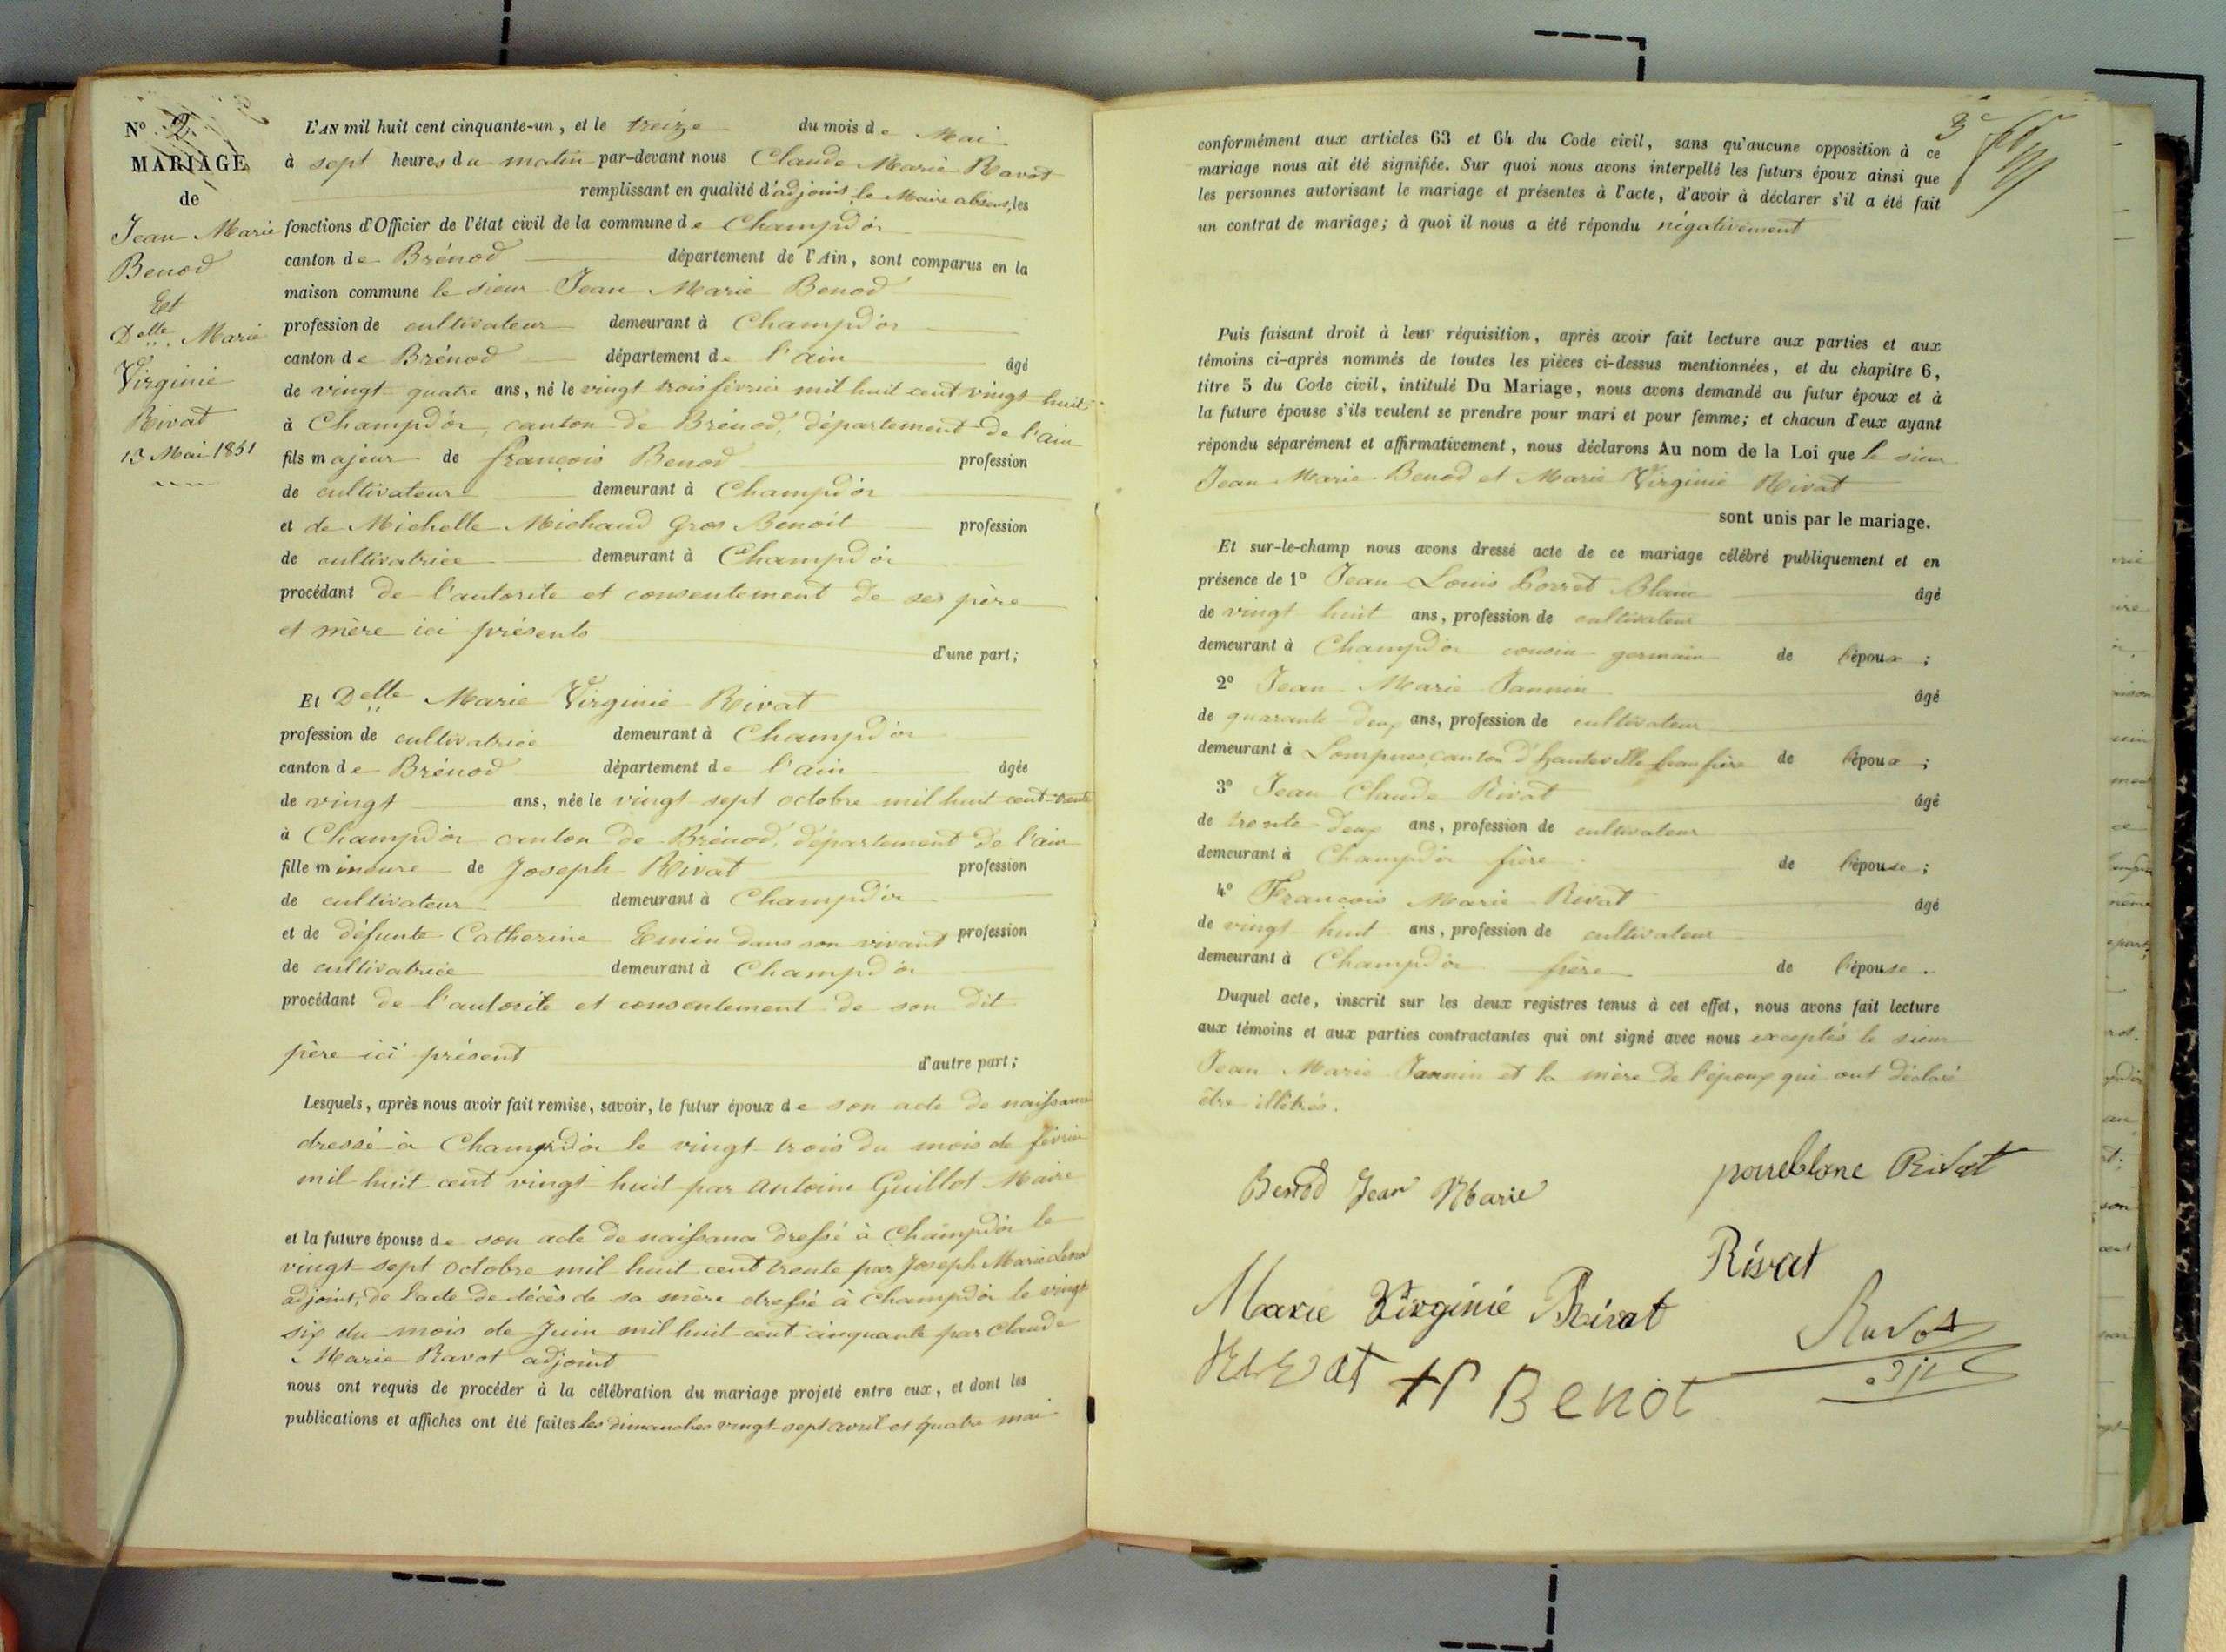 N° 2.
MARIAGE
de
Jean Marie
Benod
Et
Delle. Marie
Virginie
Rivat
13 Mai 1851
L'AN mil huit cent cinquante-un, et le treize du mois de Mai
à sept heures du matin par-devant nous Claude Marie Ravot
remplissant en qualité d'adjoint, le Maire absent, les
fonctions d'Officier de l'état civil de la commune de Champdor
canton de Brénod département de l'Ain, sont comparus en la
maison commune le sieur Jean Marie Benod
profession de cultivateur demeurant à Champdor
canton de Brénod département de l'ain âgé
de vingt quatre ans, né le vingt trois février mil huit cent vingt huit
à Champdor, canton de Brénod, département de l'ain
fils majeur de françois Benod profession
de cultivateur demeurant à Champdor
et de Michelle Michaud Gros Benoit profession
de cultivatrice demeurant à Champdor
procédant de l'autorite et consentement de ses père
et mère ici présents
d'une part;
Et Delle Marie Virginie Rivat
profession de cultivatrice demeurant à Champdor
canton de Brénod département de l'ain âgée
de vingt ans, née le vingt sept octobre mil huit cent trente
à Champdor canton de Brénod, département de l'ain
fille mineure de Joseph Rivat profession
de cultivateur demeurant à Champdor
et de défunte Catherine Emin dans son vivant profession
de cultivatrice demeurant à Champdor
procédant de l'autorite et consentement de son dit
père ici présent d'autre part;
Lesquels, après nous avoir fait remise, savoir, le futur époux de son acte de naissance
dressé à Champdor le vingt trois du mois de février
mil huit cent vingt huit par Antoine Guillot Maire
et la future épouse de son acte de naissance dressé à Champdor le
vingt sept octobre mil huit cent trente par Joseph Marie
adjoint, de l'acte de décès de sa mère dressé à Champdor le vingt
six du mois de Juin mil huit cent cinquante par Claude
Marie Ravot adjoint
nous ont requis de procéder à la célébration du mariage projeté entre eux, et dont les
publications et affiches ont été faites les dimanches vingt sept avril et quatre mai
3e
conformément aux articles 63 et 64 du Code civil, sans qu'aucune opposition à ce
mariage nous ait été signifiée. Sur quoi nous avons interpellé les futurs époux ainsi que
les personnes autorisant le mariage et présentes à l'acte, d'avoir à déclarer s'il a été fait
un contrat de mariage; à quoi il nous a été répondu négativement
Puis faisant droit à leur réquisition, après avoir fait lecture aux parties et aux
témoins ci-après nommés de toutes les pièces ci-dessus mentionnées, et du chapitre 6,
titre 5 du Code civil, intitulé Du Mariage, nous avons demandé au futur époux et à
la future épouse s'ils veulent se prendre pour mari et pour femme; et chacun d'eux ayant
répondu séparément et affirmativement, nous déclarons Au nom de la Loi que le sieur
Jean Marie Benod et Marie Virginie Rivat
sont unis par le mariage.
Et sur-le-champ nous avons dressé acte de ce mariage célébré publiquement et en
présence de 1° Jean Louis Porret Blanc âgé
de vingt huit ans, profession de cultivateur
demeurant à Champdor cousin germain de l'époux;
2° Jean Marie Jannin âgé
de quarante deux ans, profession de cultivateur
demeurant à Lompnes, canton d'hauteville beau frère de l'époux;
3° Jean Claude Rivat âgé
de trente deux ans, profession de cultivateur
demeurant à Champdor frère de l'épouse;
4° François Marie Rivat âgé
de vingt huit ans, profession de cultivateur
demeurant à Champdor frère de l'épouse.
Duquel acte, inscrit sur les deux registres tenus à cet effet, nous avons fait lecture
aux témoins et aux parties contractantes qui ont signé avec nous exceptés le sieur
Jean Marie Jannin et la mère de l'époux qui ont déclaré
être illétrés.
Benod Jean Marie
porreblanc Rivat
Rivat
Marie Virginie Rivat
Ravot
Benot